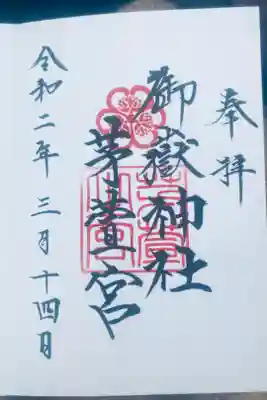 奉拝
御嶽神社
茅萱宮
令和二年三月十四日